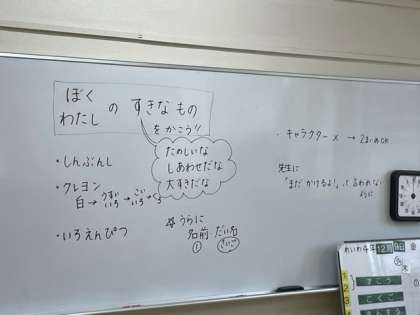 ぼく
わたし の すきな もの
をかこう!!
たのしいな
しあわせだな
大すきだな
・しんぶんし
・クレヨン
白→うすいいろ→こいいろ→
・いろえんぴつ
うらに
名前・だい名
①
・キャラクター × → 2まいめOK
先生に
「まだかけるよ!」って言われない
ように
れいわ4年12月
木
1
2
3
ずこう
こくご